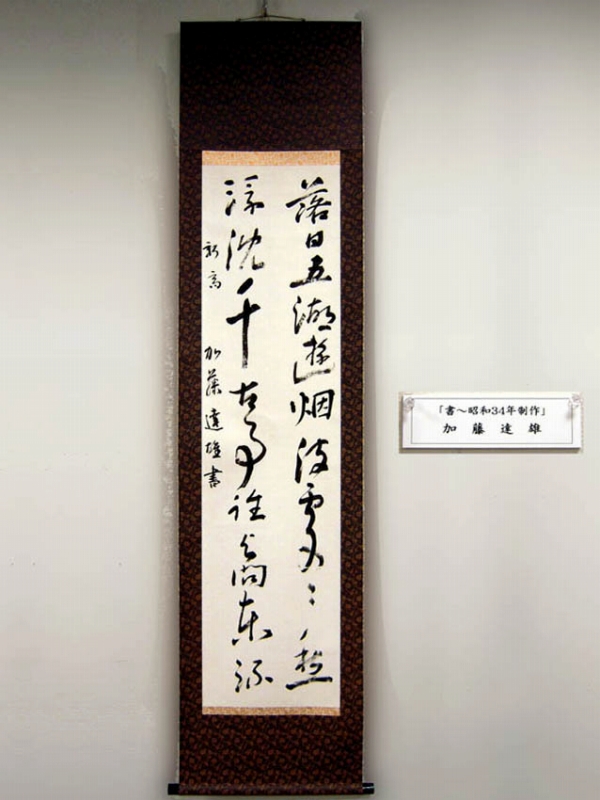 落日五湖遊烟波處々愁
浮沈千古事誰与問東流
新高 加藤達雄書
「書～昭和34年制作」
加 藤 達 雄